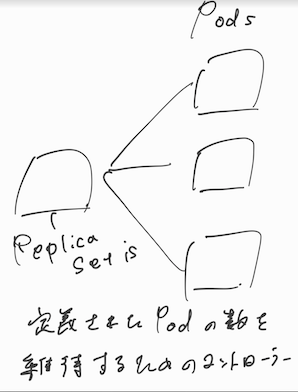 Pods
Replica
Set is
定義されたPodの数を
維持するためのコントローラー